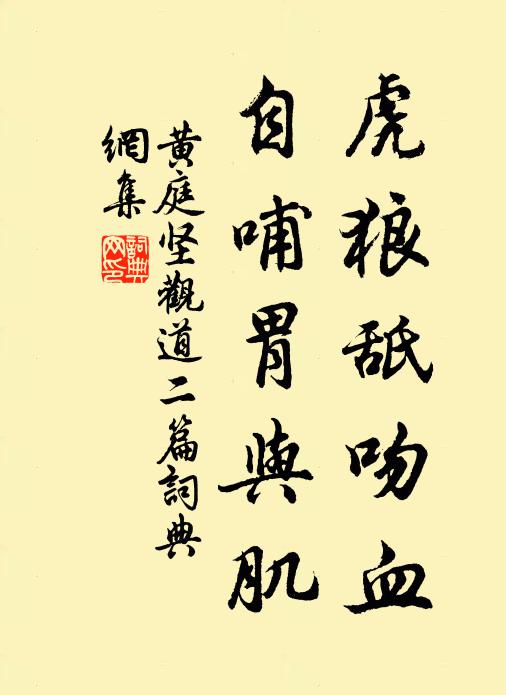 虎狼舐吻血
自哺胃與肌
黄庭坚觀道二篇詞典
網集
詞典
网印